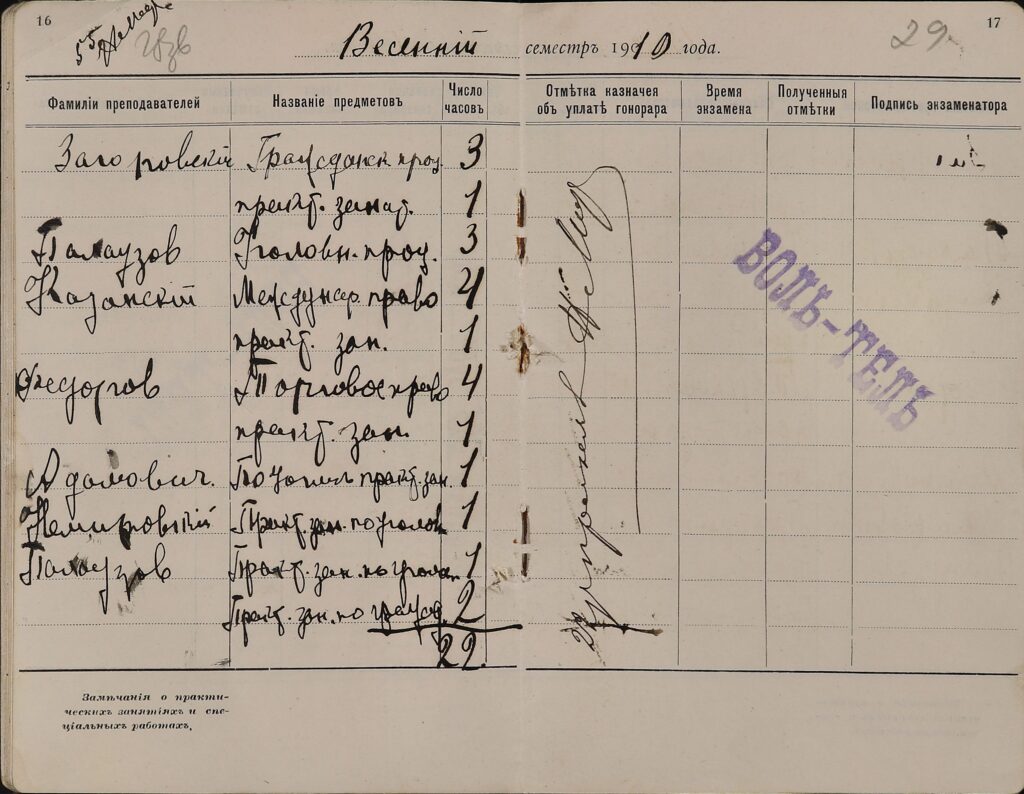 16
17
29
Весенній семестръ 1910 года.
Фамиліи преподавателей Названіе предметовъ Число часовъ Отмѣтка казначея объ уплатѣ гонорара Время экзамена Полученныя отмѣтки Подпись экзаменатора
Загоровскій Гражданск. проц. 3
практ. занят. 1
Палаузов Уголовн. проц. 3
Казанскій Междунар. право 4
практ. зан. 1
Федоров Торговое право 4
практ. зан. 1
Адамович. практ. зан. 1
Немировскій Практ. зан. по уголов 1
Палаузов Практ. зан. по 1
Практ. зан. по 2
22.
ВОЛЬ-ТЕЛЬ
Замѣчанія о практи-
ческихъ занятіяхъ и спе-
ціальныхъ работахъ.